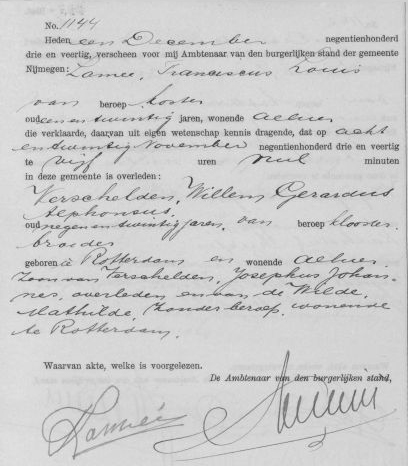 No. 1144
Heden een December negentienhonderd
drie en veertig, verscheen voor mij Ambtenaar van den burgerlijken stand der gemeente
Nijmegen: Lamee, Franciscus Louis
van beroep koster
oud een en twintig jaren, wonende alhier
die verklaarde, daarvan uit eigen wetenschap kennis dragende, dat op acht
en twintig November negentienhonderd drie en veertig
te vijf uren nul minuten
in deze gemeente is overleden:
Verschelden, Willem Gerardus
Alphonsus,
oud negen en twintig jaren, van beroep klooster-
broeder
geboren te Rotterdam en wonende alhier
zoon van Verschelden, Josephus Johan-
nes, overleden en van de Wilde,
Mathilde, zonder beroep, wonende
te Rotterdam.
Waarvan akte, welke is voorgelezen.
De Ambtenaar van den burgerlijken stand,